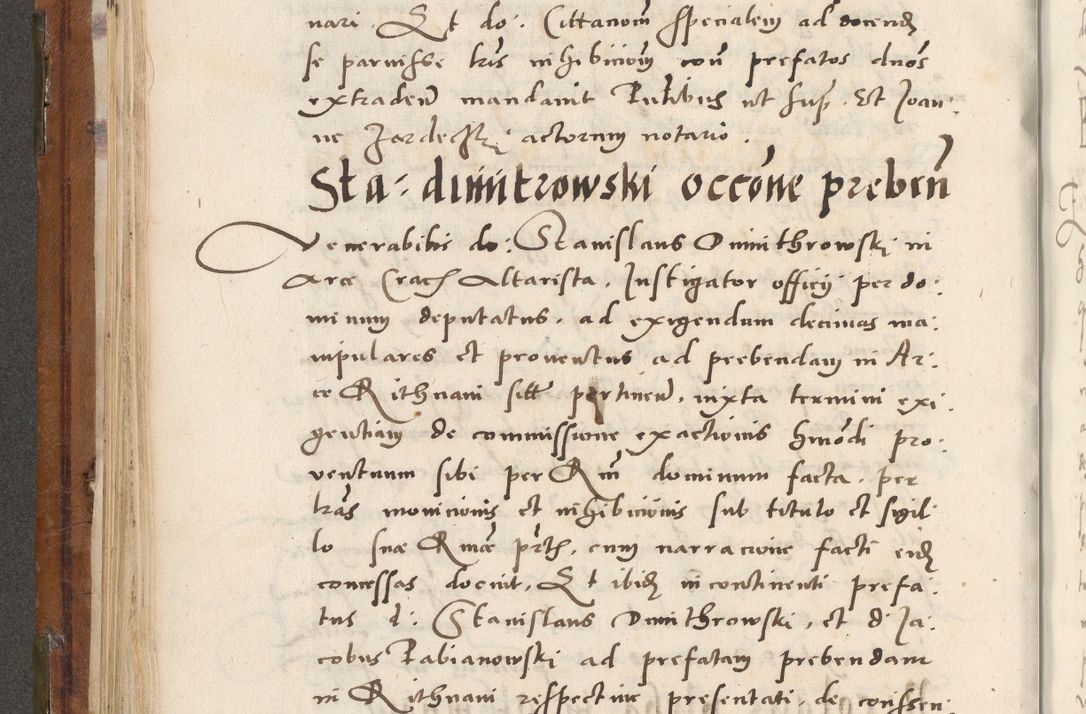 nari. Et do: Cittacionem specialem ad docendum
se paruisse lras inhibicionum con prefatos dnos
extraden mandauit Pntibus ut sup. Et Joan:
ne Jardecky actorum notario.
Sta: dimitrowski occone preben
Venerabilis do: Stanislaus Dimithrowski in
Arce Crac Altarista, Instigator officij per do:
minum deputatus, ad exigendum decimas ma:
nipulares et prouentus ad prebendam in Ar:
ce Rithnani sitt pertinen, iuxta termini exi:
gentiam de commissione exactionis hmodi pro:
uentuum sibi per Rm dominum facta, per
lras monicionis et inhibicionis sub titulo et sigil
lo sue Rme prth, cum narracione facti eidem
concessas docuit, Et ibidem incontinenti prefa:
tus d: Stanislaus Dmithrowski, et d Ja:
cobus Babianowski ad prefatam prebendam
in Rithnani respectiue presentati, de conssen: